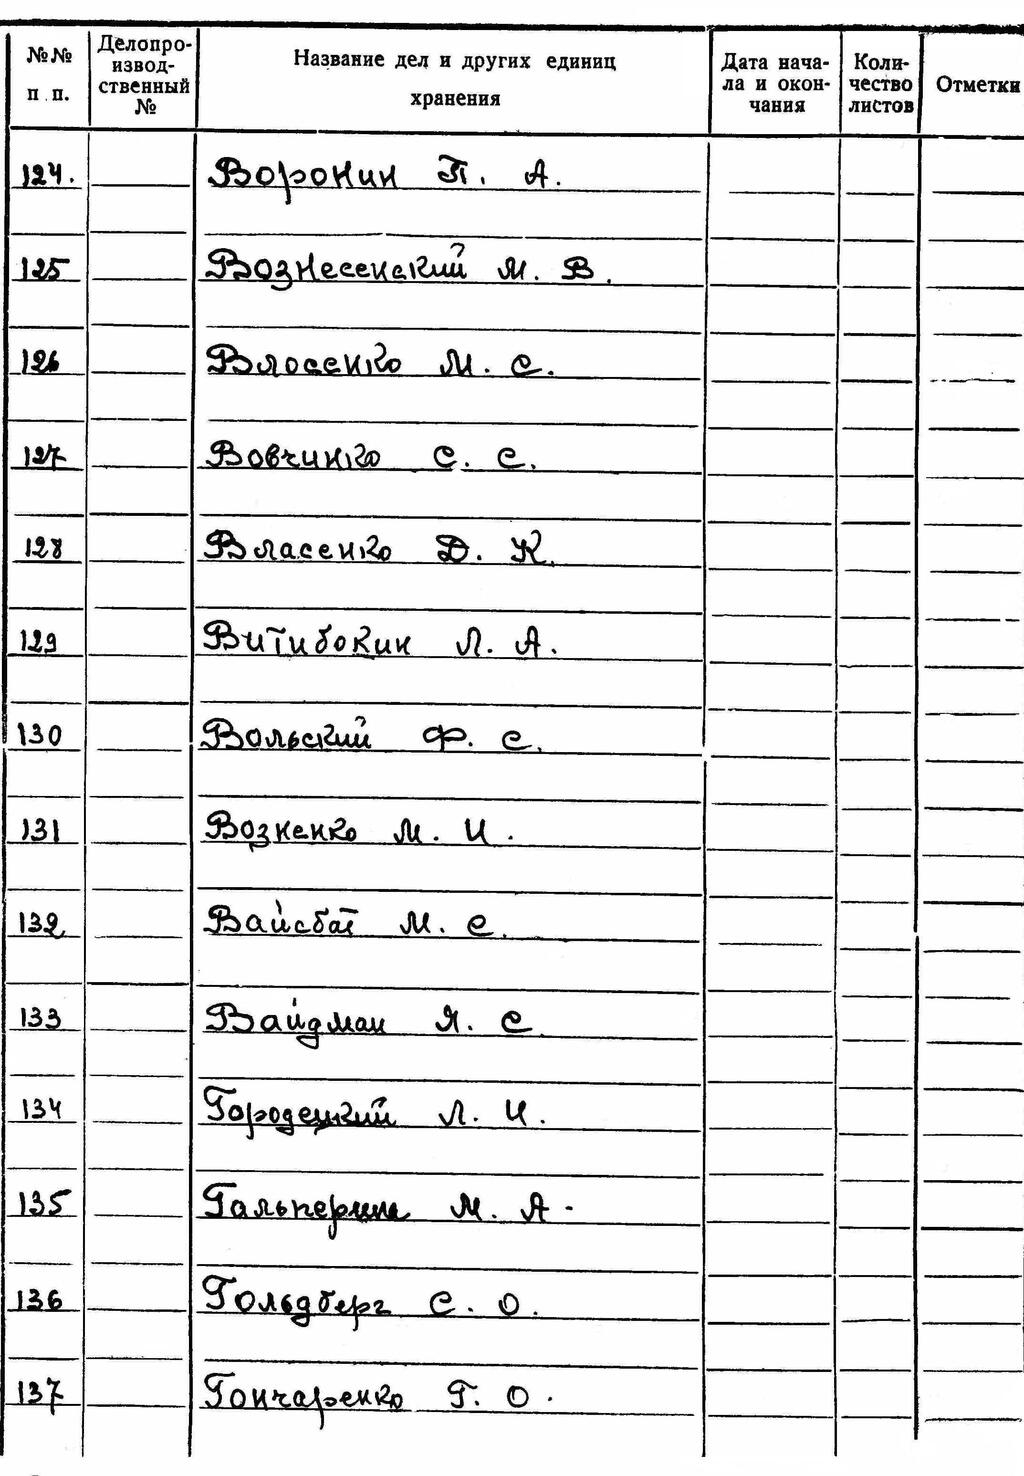 №№ п.п. Делопроизводственный № Название дел и других единиц хранения Дата начала и окончания Количество листов Отметки
124. Воронин П. А.
125 Вознесенский М. В.
126 Власенко М. С.
127 Вовчинко С. С.
128 Власенко Д. К.
129 Витибокин Л. А.
130 Вольский Ф. С.
131 Возненко М. И.
132 Вайсбат М. С.
133 Вайдман Я. С.
134 Городецкий Л. И.
135 Гальперина М. А.
136 Гольдберг С. О.
137 Гончаренко Г. О.